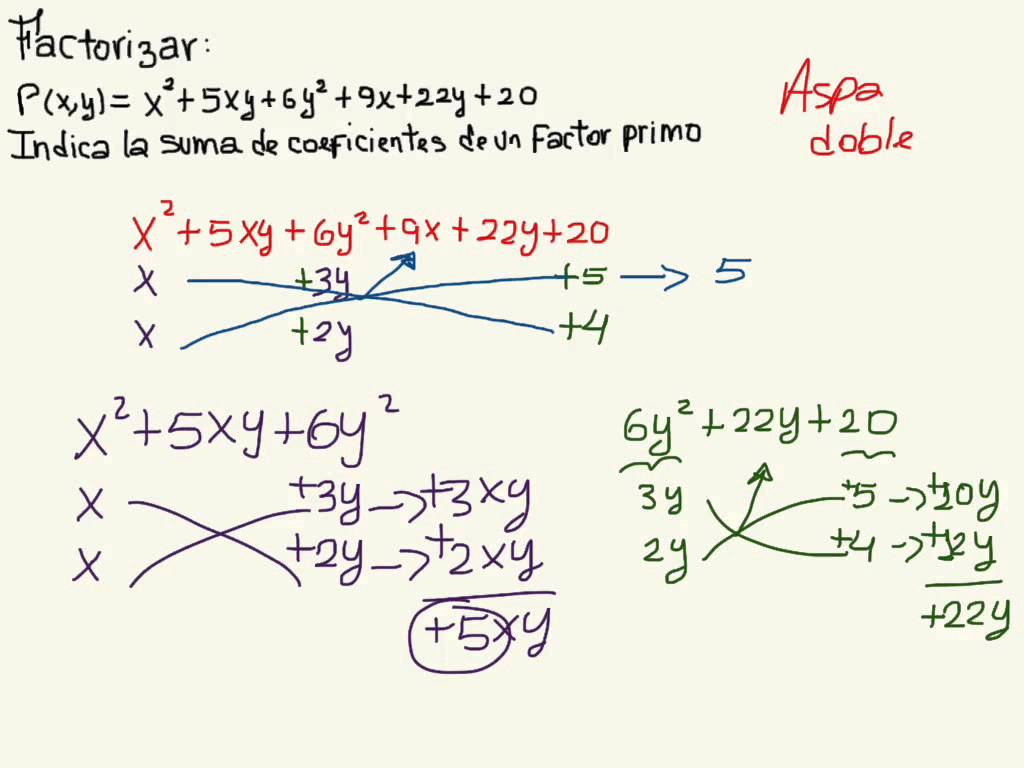 Factorizar:
P(x,y)= x²+5xy+6y²+9x+22y+20
Indica la suma de coeficientes de un Factor primo
Aspa
doble
x²+5xy+6y²+9x+22y+20
x +3y +5 → 5
x +2y +4
x²+5xy+6y²
x +3y → +3xy
x +2y → +2xy
+5xy
6y²+22y+20
3y +5 → +10y
2y +4 → +12y
+22y